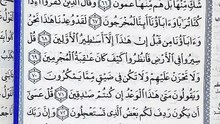 شَكٍّ مِنْهَا بَلْ هُم مِّنْهَا عَمُونَ ٦٦ وَقَالَ الَّذِينَ كَفَرُوا أَءِذَا
كُنَّا تُرَابًا وَءَابَاؤُنَا أَئِنَّا لَمُخْرَجُونَ ٦٧ لَقَدْ وُعِدْنَا هَٰذَا نَحْنُ
وَءَابَاؤُنَا مِن قَبْلُ إِنْ هَٰذَا إِلَّا أَسَاطِيرُ الْأَوَّلِينَ ٦٨
قُلْ سِيرُوا فِي الْأَرْضِ فَانظُرُوا كَيْفَ كَانَ عَاقِبَةُ الْمُجْرِمِينَ ٦٩
وَلَا تَحْزَنْ عَلَيْهِمْ وَلَا تَكُن فِي ضَيْقٍ مِّمَّا يَمْكُرُونَ ٧٠
وَيَقُولُونَ مَتَىٰ هَٰذَا الْوَعْدُ إِن كُنتُمْ صَادِقِينَ ٧١ قُلْ عَسَىٰ
أَن يَكُونَ رَدِفَ لَكُم بَعْضُ الَّذِي تَسْتَعْجِلُونَ ٧٢ وَإِنَّ رَبَّكَ